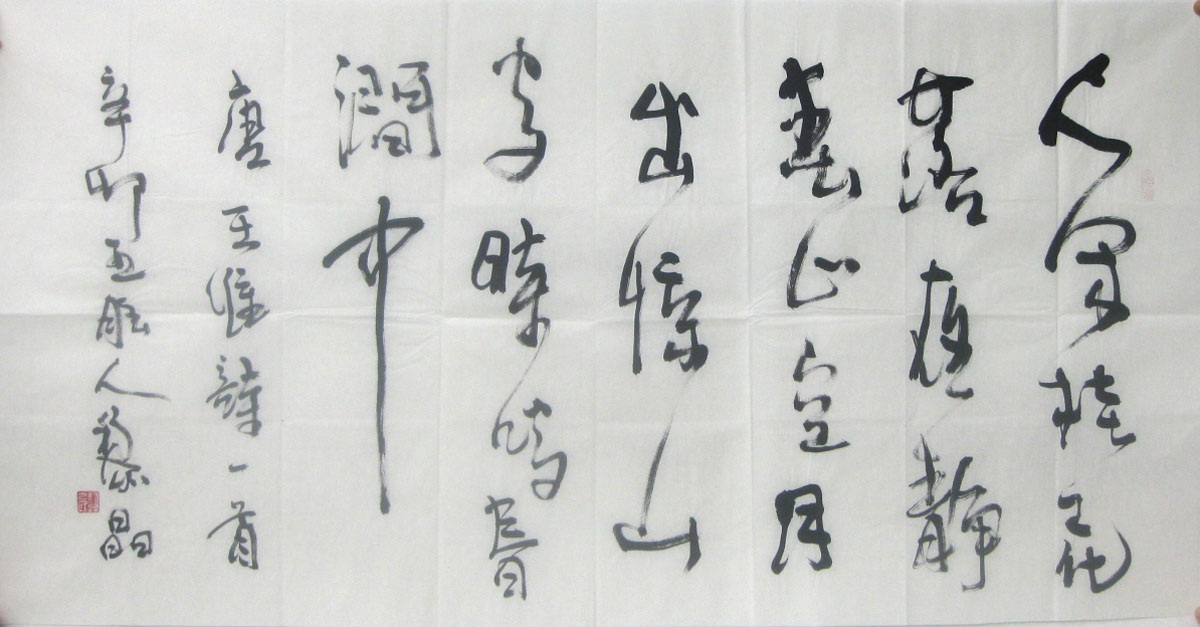 人閑桂花
落夜靜
春山空月
出惊山
鳥時鳴春
澗中
唐王維詩一首
辛卯人黎晶